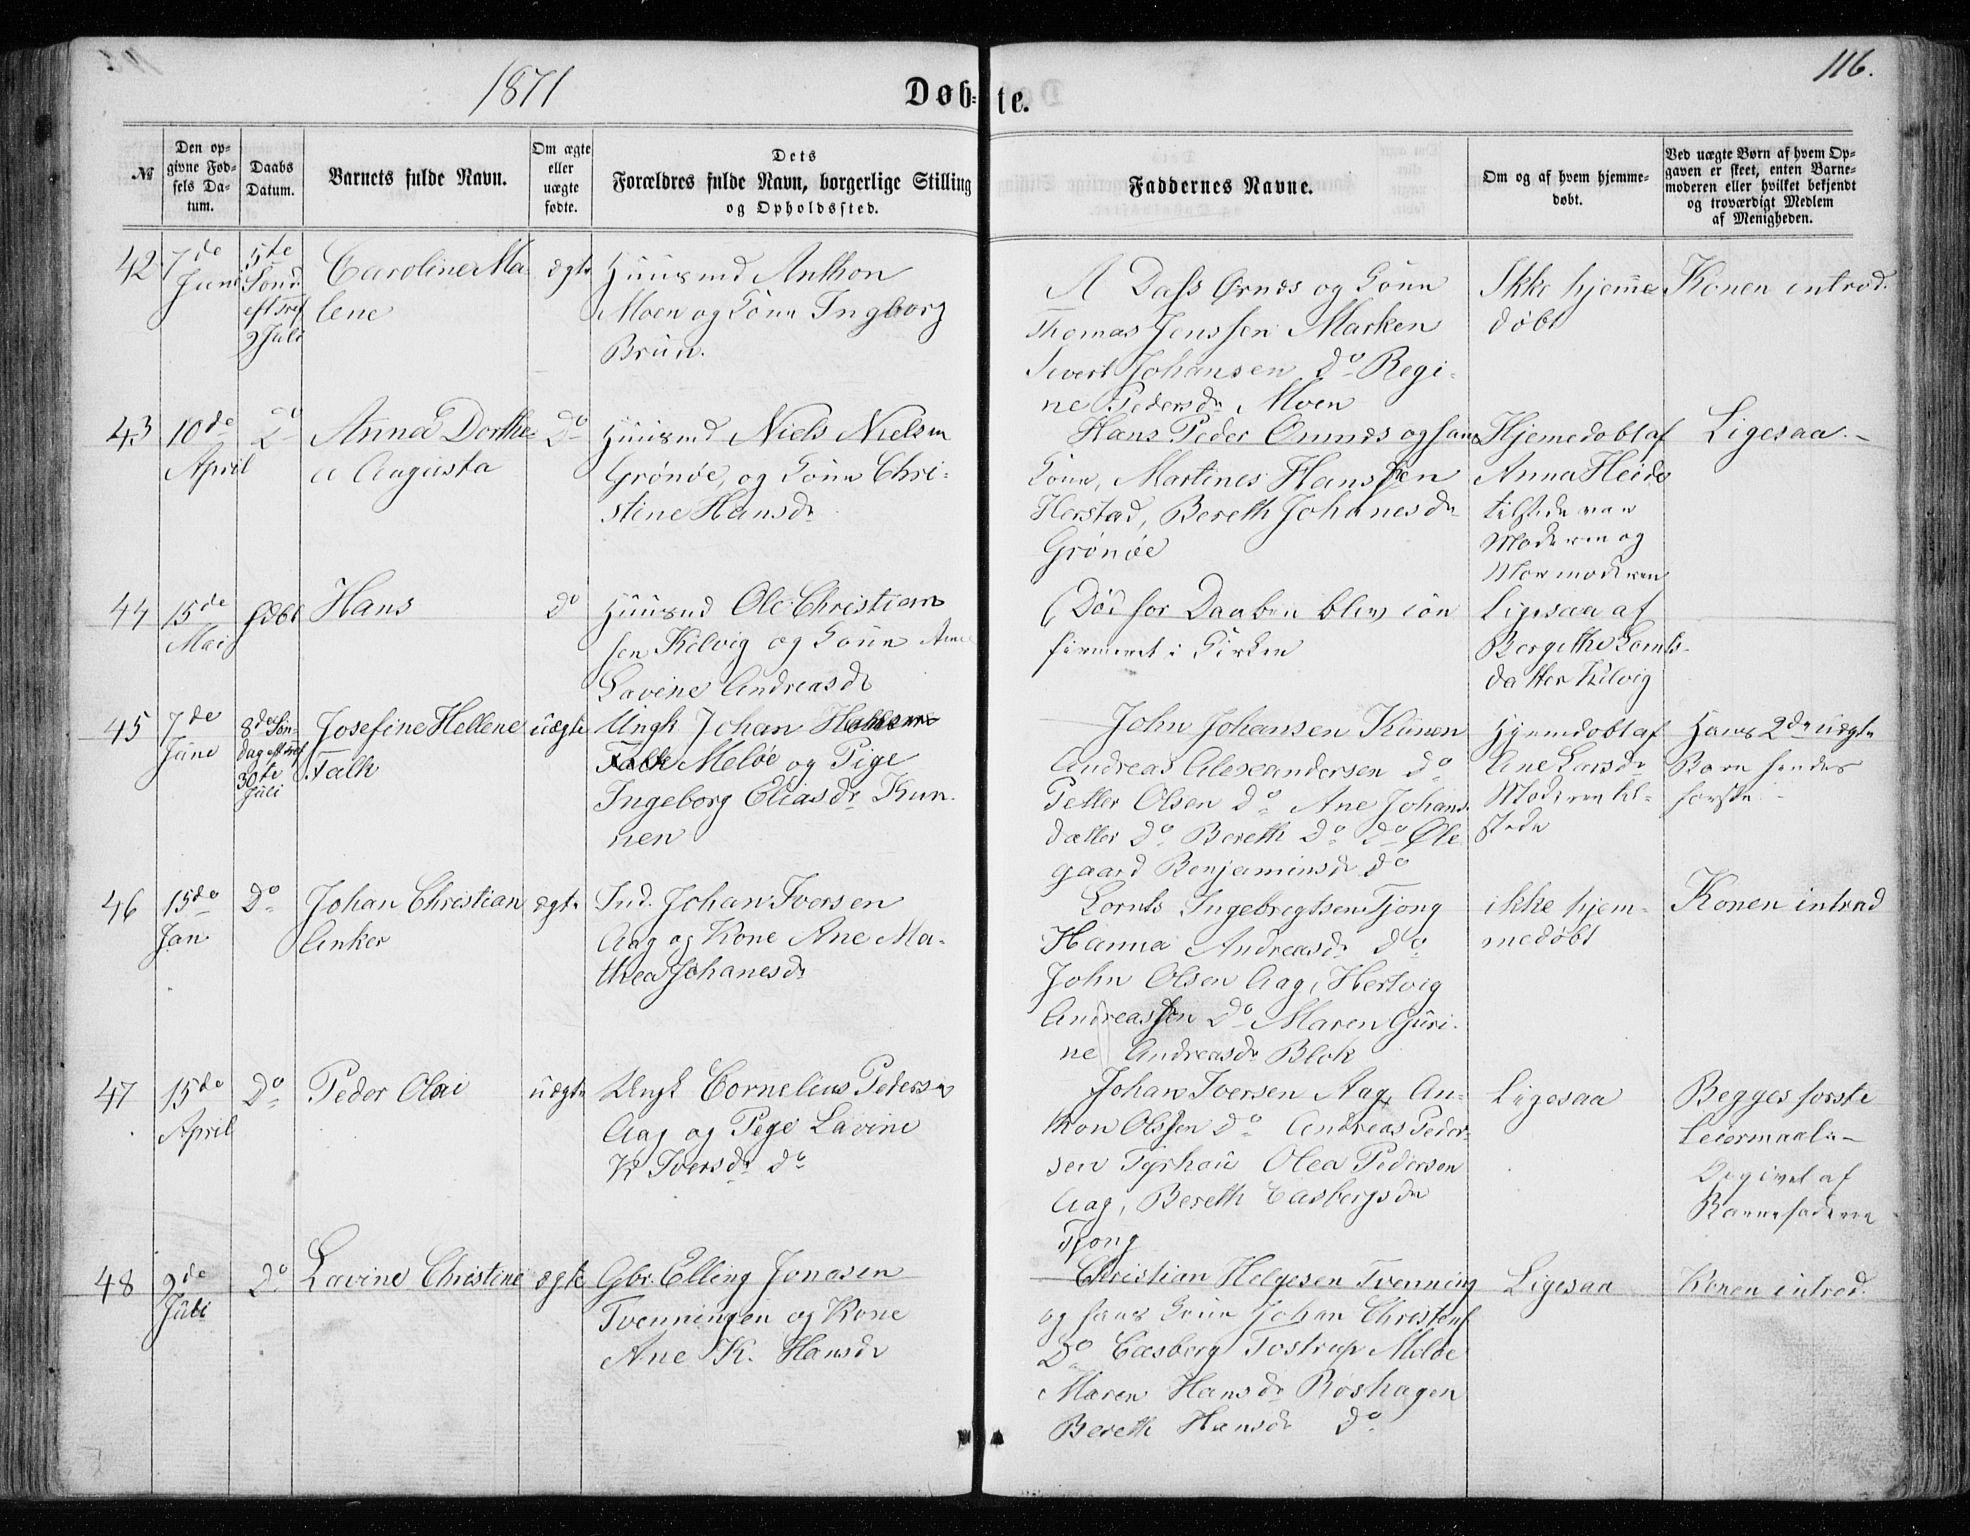 1871
Døb-te.
116.
№
Den op-
givne Fød-
sels Da-
tum.
Daabs
Datum.
Barnets fulde Navn.
Om ægte
eller
uægte
fødte.
Dets
Forældres fulde Navn, borgerlige Stilling
og Opholdssted.
Faddernes Navne.
Om og af hvem hjemme-
døbt.
Ved uægte Børn af hvem Op-
gaven er skeet, enten Barne-
moderen eller hvilket bekjendt
og troværdigt Medlem
af Menigheden.
42
7de
Juni
5te
Sønd
eft Tref
9 Juli
Caroline Ma-
lene
ægte
Huusmd Anthon
Moen og Konn Ingborg
Brun.
A Dass Ørnes og Konn
Thomas Jenssen Marken
Sivert Johansen Do Regi-
ne Pedersdr Moen
Ikke hjemme
døbt
Konen introd.
43
10de
April
Do
Anna Dorthe-
a Augusta
Do
Huusmd Niels Nielsen
Grønøe, og Kone Chri-
stine Hansdr
Hans Peder Ørnnes og hans
Kone, Martines Hanssen
Herstad, Bereth Johanesdr
Grønøe
Hjemedøbt af
Anna Heide
tilstede var
Moderen og
Mormoderen
Ligesaa.-
44
15de
Mai
Hans
Do
Huusmd Ole Christian
sen Kilvig og Kone Ane
Lavine Andreasdr
(Død før Daaben blev con
firmeret i Kirken
Ligesaa af
Bergithe
datter Kilvig
45
7de
Juni
8de Søn-
dag eft Tref
30te
Juli
Josefine Hellene
Falk
uægte
Ungk Johan
Falk Meløe og Pige
Ingeborg Eliasdr Kun-
nen
John Johansen Kunen
Andreas Alexandersen Do
Petter Olsen Do Ane Johans-
datter Do Bereth Do Do Ole-
gaard Benjaminsdr Do
Hjemdøbt af
Ane Larsdr
Moderen til-
stede
Hans 2de uægte
Barn hendes
første.-
46
15de
Jan
Do
Johan Christian
Anker
ægte
Ind. Johan Iversen
Aag og Kone Ane Ma-
thea Johanesdr
Lornts Ingebregtsen Tjong
Hanna Andreasdr Do
John Olsen Aag, Hertvig
Andreassen Do Maren Guri-
ne Andreasdr Blok
ikke hjem-
medøbt
Konen introd
47
15de
April
Do
Peder Olai
uægte
Ungk Cornelius Pedersen
Aag og Pige Lavine
K Iversdr Do
Johan Iversen Aag, An-
thon Olssen Do Andreas Peder-
sen Tyrhau Olea Pedersen
Aag, Bereth Casbergsdr
Tjong
Ligesaa
Begges første
Leiermaal.-
Opgivet af
Barnefaderen
48
2de
Juli
Do
Lavine Christine
ægte
Gbr. Elling Jonasen
Tvenningen og Kone
Ane K. Hansdr
Christian Helgesen Tvenning
og hans Kone Johan Christens
Do Casberg Tostrup Meløe
Maren Hansdr Røshagen
Bereth Hansdr Do
Ligesaa
Konen introd.